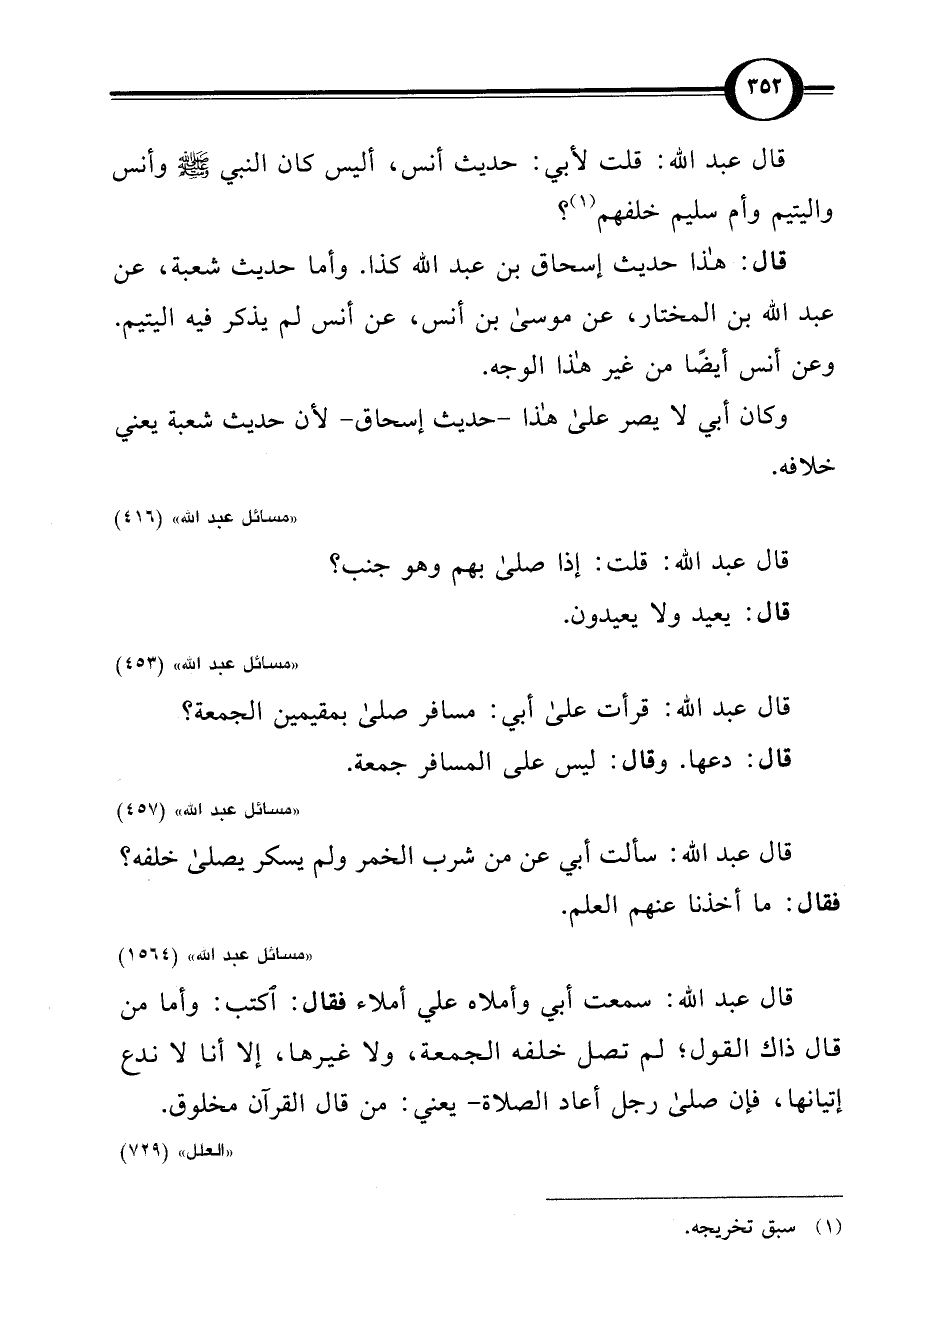 ٣٥٢
قال عبد الله: قلت لأبي: حديث أنس، أليس كان النبي ﷺ وأنس
واليتيم وأم سليم خلفهم(١)؟
قال: هذا حديث إسحاق بن عبد الله كذا. وأما حديث شعبة، عن
عبد الله بن المختار، عن موسىٰ بن أنس، عن أنس لم يذكر فيه اليتيم.
وعن أنس أيضًا من غير هذا الوجه.
وكان أبي لا يصر علىٰ هذا -حديث إسحاق- لأن حديث شعبة يعني
خلافه.
«مسائل عبد الله» (٤١٦)
قال عبد الله: قلت: إذا صلىٰ بهم وهو جنب؟
قال: يعيد ولا يعيدون.
«مسائل عبد الله» (٤٥٣)
قال عبد الله: قرأت علىٰ أبي: مسافر صلىٰ بمقيمين الجمعة؟
قال: دعها. وقال: ليس على المسافر جمعة.
«مسائل عبد الله» (٤٥٧)
قال عبد الله: سألت أبي عن من شرب الخمر ولم يسكر يصلىٰ خلفه؟
فقال: ما أخذنا عنهم العلم.
«مسائل عبد الله» (١٥٦٤)
قال عبد الله: سمعت أبي وأملاه علي أملاء فقال: ٱكتب: وأما من
قال ذاك القول؛ لم تصل خلفه الجمعة، ولا غيرها، إلا أنا لا ندع
إتيانها، فإن صلىٰ رجل أعاد الصلاة- يعني: من قال القرآن مخلوق.
«العلل» (٧٢٩)
(١) سبق تخريجه.